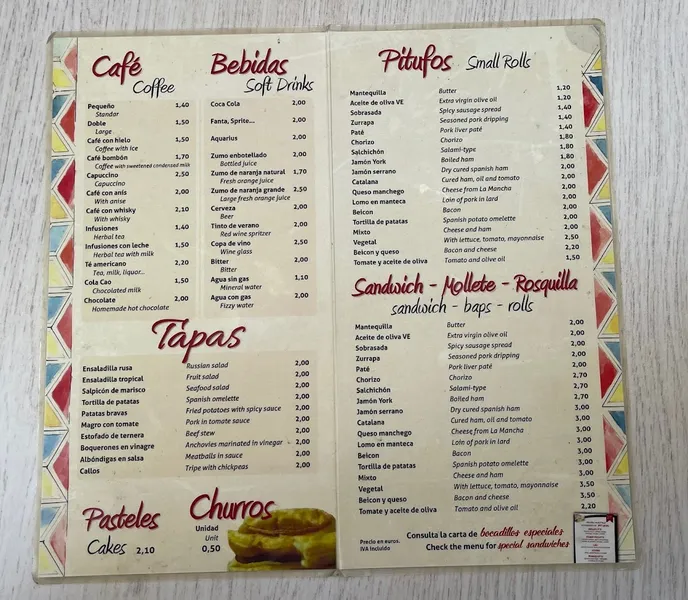 Café
Coffee
Pequeño 1,40
Standar
Doble 1,50
Large
Café con hielo 1,50
Coffee with ice
Café bombón 1,70
Coffee with sweetened condensed milk
Capuccino 2,50
Capuccino
Café con anís 2,00
With anise
Café con whisky 2,10
With whisky
Infusiones 1,40
Herbal tea
Infusiones con leche 1,50
Herbal tea with milk
Té americano 2,20
Tea, milk, liquor...
Cola Cao 1,50
Chocolated milk
Chocolate 2,00
Homemade hot chocolate
Bebidas
Soft Drinks
Coca Cola 2,00
Fanta, Sprite... 2,00
Aquarius 2,00
Zumo enbotellado 2,00
Bottled juice
Zumo de naranja natural 1,70
Fresh orange juice
Zumo de naranja grande 2,50
Large fresh orange juice
Cerveza 2,00
Beer
Tinto de verano 2,00
Red wine spritzer
Copa de vino 2,50
Wine glass
Bitter 2,00
Bitter
Agua sin gas 1,10
Mineral water
Agua con gas 2,00
Fizzy water
Tapas
Ensaladilla rusa Russian salad 2,00
Ensaladilla tropical Fruit salad 2,00
Salpicón de marisco Seafood salad 2,00
Tortilla de patatas Spanish omelette 2,00
Patatas bravas Fried potatoes with spicy sauce 2,00
Magro con tomate Pork in tomate sauce 2,00
Estofado de ternera Beef stew 2,00
Boquerones en vinagre Anchovies marinated in vinegar 2,00
Albóndigas en salsa Meatballs in sauce 2,00
Callos Tripe with chickpeas 2,00
Pasteles
Cakes 2,10
Churros
Unidad
Unit
0,50
Pitufos Small Rolls
Mantequilla Butter 1,20
Aceite de oliva VE Extra virgin olive oil 1,20
Sobrasada Spicy sausage spread 1,40
Zurrapa Seasoned pork dripping 1,40
Paté Pork liver paté 1,40
Chorizo Chorizo 1,80
Salchichón Salami-type 1,80
Jamón York Boiled ham 1,80
Jamón serrano Dry cured spanish ham 2,00
Catalana Cured ham, oil and tomato 2,00
Queso manchego Cheese from La Mancha 2,00
Lomo en manteca Loin of pork in lard 2,00
Beicon Bacon 2,00
Tortilla de patatas Spanish potato omelette 2,00
Mixto Cheese and ham 2,00
Vegetal With lettuce, tomato, mayonnaise 2,50
Beicon y queso Bacon and cheese 2,20
Tomate y aceite de oliva Tomato and olive oil 1,50
Sandwich - Mollete - Rosquilla
sandwich - baps - rolls
Mantequilla Butter 2,00
Aceite de oliva VE Extra virgin olive oil 2,00
Sobrasada Spicy sausage spread 2,00
Zurrapa Seasoned pork dripping 2,00
Paté Pork liver paté 2,00
Chorizo Chorizo 2,70
Salchichón Salami-type 2,70
Jamón York Boiled ham 2,70
Jamón serrano Dry cured spanish ham 3,00
Catalana Cured ham, oil and tomato 3,00
Queso manchego Cheese from La Mancha 3,00
Lomo en manteca Loin of pork in lard 3,00
Beicon Bacon 3,00
Tortilla de patatas Spanish potato omelette 3,00
Mixto Cheese and ham 3,00
Vegetal With lettuce, tomato, mayonnaise 3,50
Beicon y queso Bacon and cheese 3,50
Tomate y aceite de oliva Tomato and olive oil 2,20
Precio en euros.
IVA incluido
Consulta la carta de bocadillos especiales
Check the menu for special sandwiches